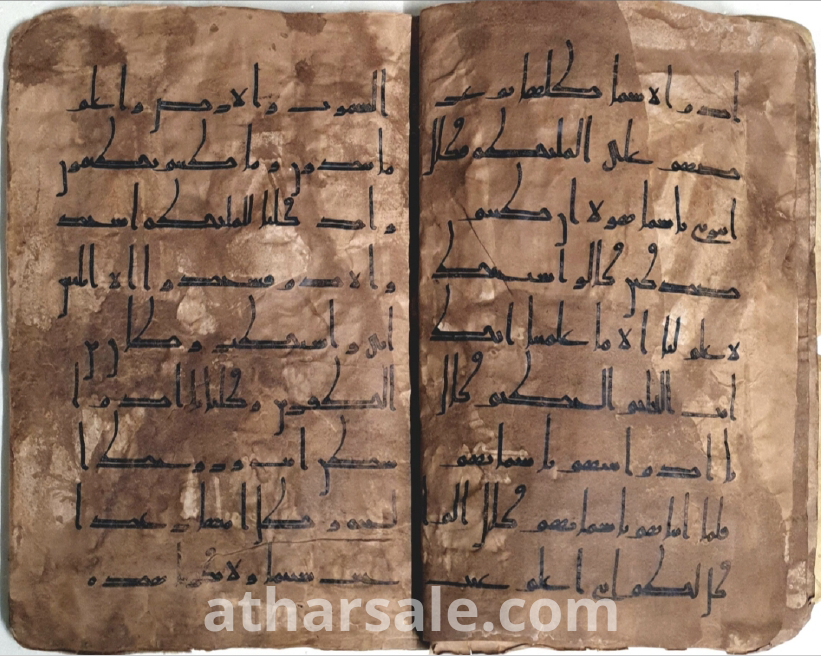 ادم الاسما كلها ثم عر
ضهم على الملئكه فقال
انبوني باسما هولا ان كنتم
صدقين قالوا سبحنك
لا علم لنا الا ما علمتنا انك
انت العليم الحكيم قال
يادم انبهم باسمائهم
فلما انباهم باسمائهم قال الم ا
قل لكم اني اعلم غيب
السموت والارض واعلم
ما تبدون وما كنتم تكتمون
واذ قلنا للملئكه اسجد
وا لادم فسجدوا الا ابليس
ابى واستكبر وكان من
الكفرين وقلنا يادم ا
سكن انت وزوجك ا
لجنه وكلا منها رغدا
حيث شئتما ولا تقربا هذه
atharsale.com